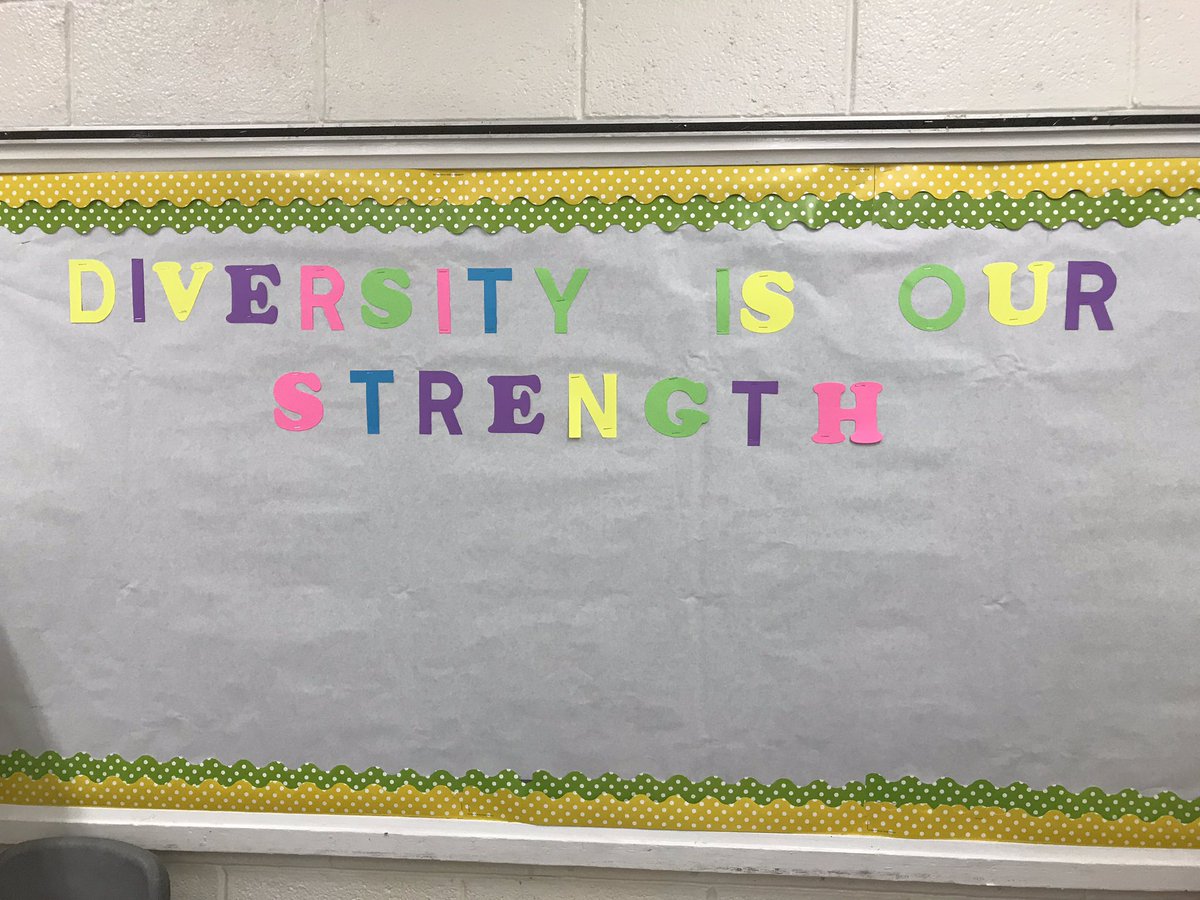 DIVERSITY IS OUR
STRENGTH